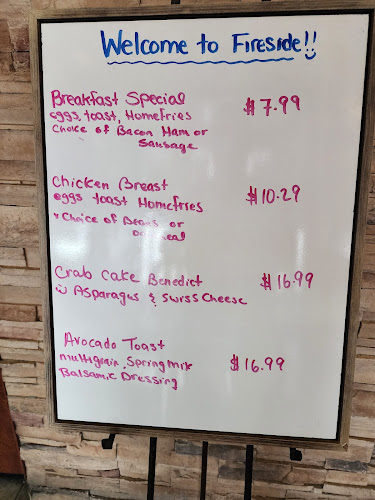 Welcome to Fireside!!
Breakfast Special $7.99
eggs, toast, Homefries
Choice of Bacon Ham or
Sausage
Chicken Breast $10.29
eggs toast Homefries
Choice of Beans or
Crab Cake Benedict $16.99
w Asparagus & Swiss Cheese
Avocado Toast
multigrain, Spring mix $16.99
Balsamic Dressing